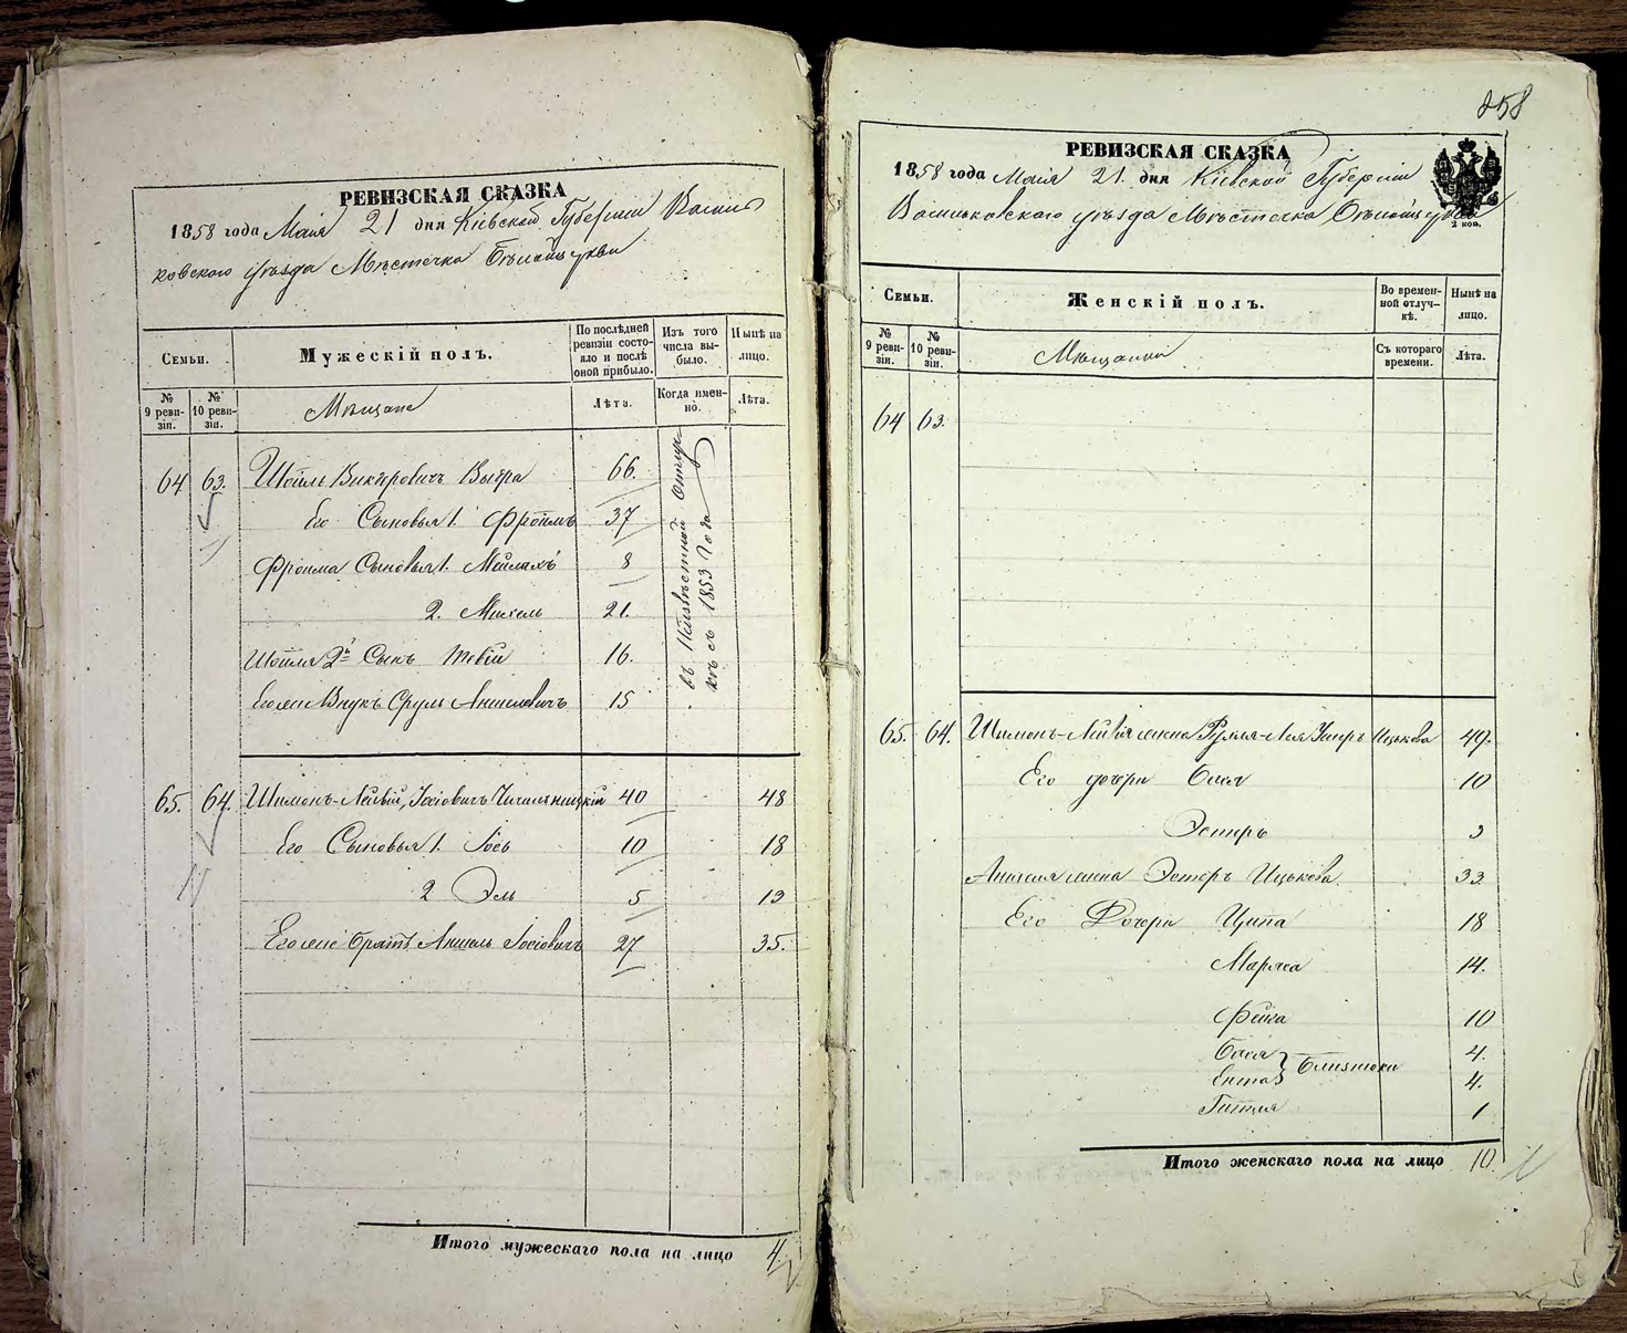 РЕВИЗСКАЯ СКАЗКА
1858 года Маія 21 дня Кіевской Губерніи Василь
ковского уѣзда Мѣстечка Бѣлойцеркви
Семьи.
Мужескій полъ.
По послѣдней ревизіи состояло и послѣ оной прибыло.
Изъ того числа выбыло.
Нынѣ на лицо.
№ 9 ревизіи.
№ 10 ревизіи.
Мѣщане
Лѣта.
Когда именно.
Лѣта.
64 63. Шойль Выгра 66.
Его Сыновья 1. Фроимъ 37
Фроима Сыновья 1. Мейлахъ 8
2. Михель 21.
Шойля 2й Сынъ Тевій 16.
Его же Внукъ Сруль Аншелевичъ 15
въ Неизвѣстной Отлуч-
кѣ съ 1853 Года
65. 64. Шимонъ-Лейвій Іосіовичъ 40 48
Его Сыновья 1. Іось 10 18
2 Эль 5 13
Его же братъ Аншель Іосіовичъ 27 35.
Итого мужескаго пола на лицо 4.
858
РЕВИЗСКАЯ СКАЗКА
1858 года Маія 21. дня Кіевской Губерніи
Васильковского уѣзда Мѣстечка Бѣлойцеркви
2 коп.
Семьи.
Женскій полъ.
Во временной отлучкѣ.
Нынѣ на лицо.
№ 9 ревизіи.
№ 10 ревизіи.
Мѣщанки
Съ котораго времени.
Лѣта.
64 63.
65. 64. Шимонъ-Лейвія жена Ицькова 49.
Его дочери Бася 10
Эстеръ 3
Аншеля жена Эстеръ Ицькова. 33
Его Дочери Ципа 18
Маряса 14.
Фейга 10
Бася 4.
Близнюки
Ента 4.
Гитля 1
Итого женскаго пола на лицо 10.